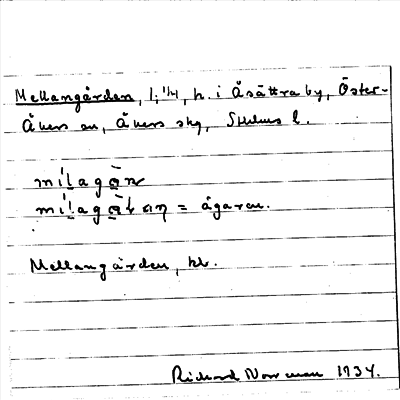 Mellangården, 1/4, h. i Åsättra by, Öster-
Åkers sn, Åkers skg, Sthlms l.
mílagạ̀n
mílagạ̀ḷ = ägaren.
Mellangården, kr.
Richard Norrman 1934.